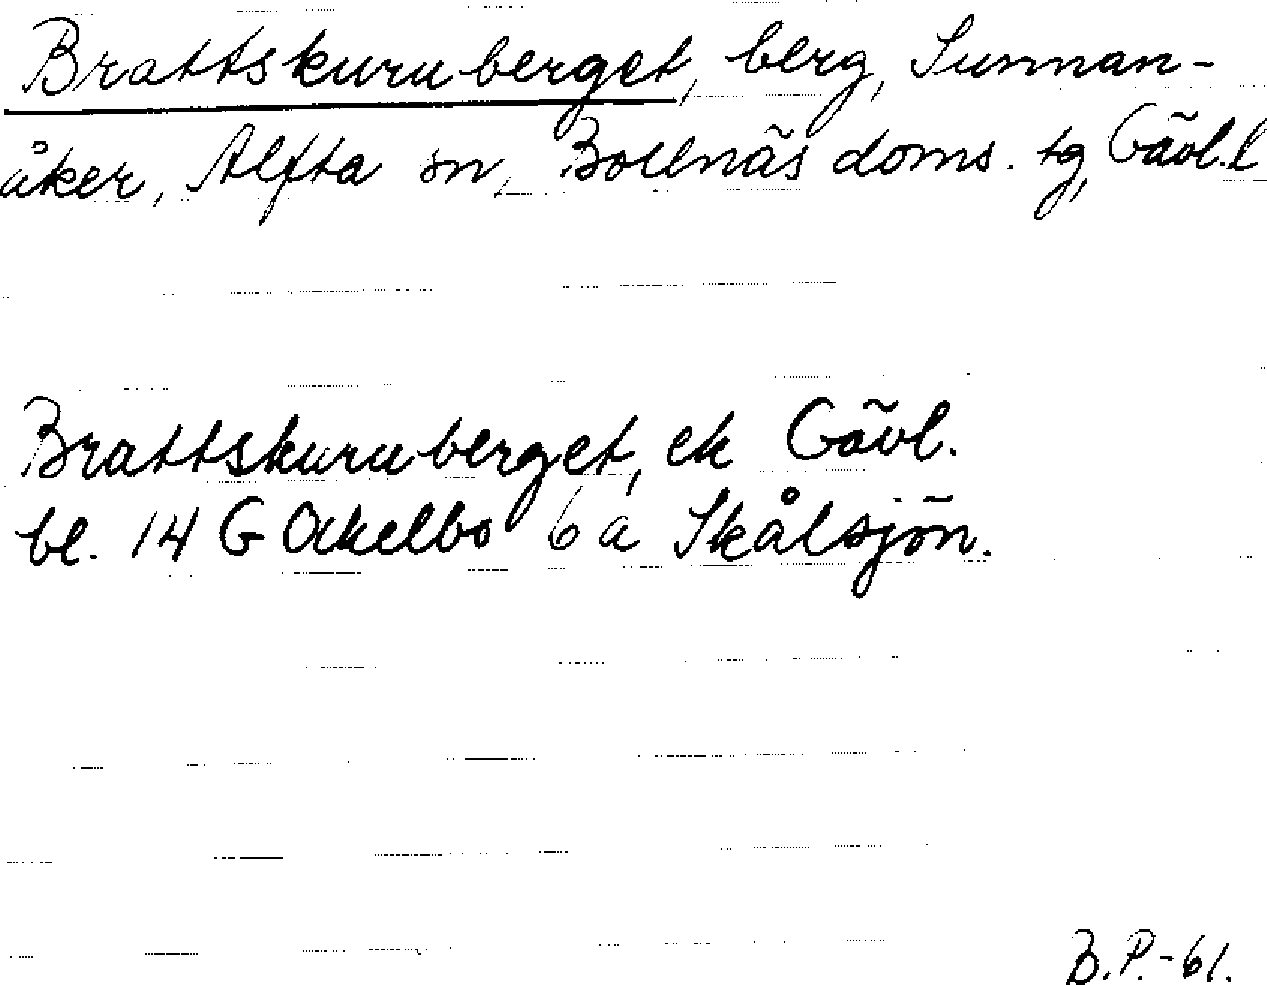 Brattskuruberget, berg, Sunnan-
åker, Alfta sn, Bollnäs doms. tg, Gävl. l
Brattskuruberget, ek Gävl.
bl. 14 G Ockelbo 6 a Skålsjön.
B.P.-61.